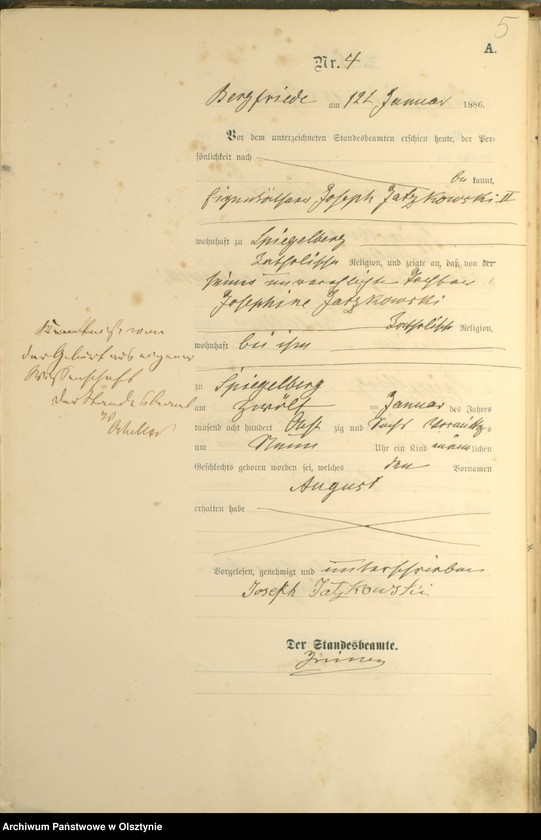 5
A.
Nr. 4
Bergfriede am 12t Januar 1886.
Vor dem unterzeichneten Standesbeamten erschien heute, der Per-
sönlichkeit nach
be kannt,
Eigenkäthner Joseph Jatzkowski II
wohnhaft zu Spiegelberg
katholischer Religion, und zeigte an, daß von der
seiner unverehelichten Tochter
Josephine Jatzkowski
katholischer Religion,
wohnhaft bei ihm
zu Spiegelberg
am zwölf ten Januar des Jahres
tausend acht hundert Acht zig und Sechs Vormittags
um Neun Uhr ein Kind männ lichen
Geschlechts geboren worden sei, welches den Vornamen
August
erhalten habe
Kenntniß von
der Geburt aus eigener
Wissenschaft
Der Standesbeamte
Vorgelesen, genehmigt und unterschrieben
Joseph Jatzkowski
Der Standesbeamte.
Archiwum Państwowe w Olsztynie